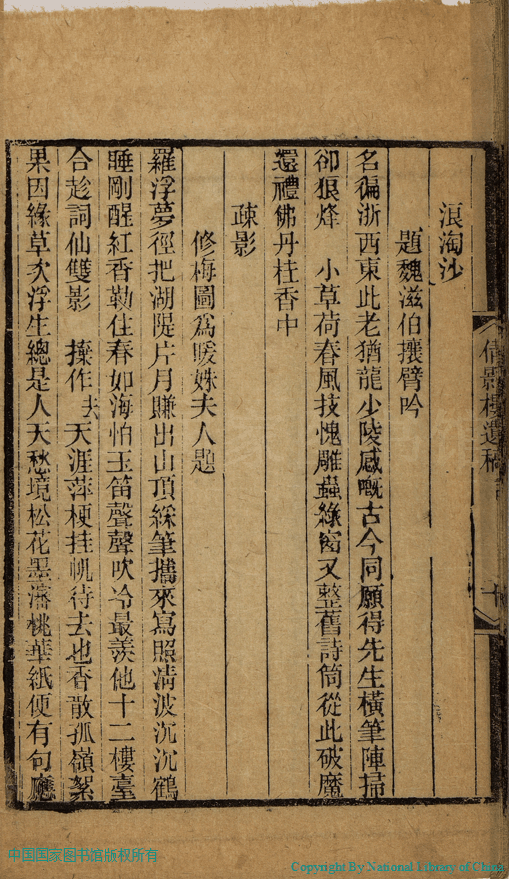 浪淘沙
題魏滋伯攘臂吟
名徧浙西東此老猶龍少陵感嘅古今同願得先生橫筆陣掃
卻狼烽　小草荷春風技愧雕蟲綠窗又整舊詩筒從此破魔
還禮佛丹桂香中
疎影
修梅圖為暖姝夫人題
羅浮夢徑把湖隄片月賺出山頂綵筆攜來寫照清波沉沉鶴
睡剛醒紅香勒住春如海怕玉笛聲聲吹冷最羨他十二樓臺
合趁詞仙雙影　操作去天涯萍梗挂帆待去也香散孤嶺絮
果因緣草草浮生總是人天愁境松花墨瀋桃華紙便有句應
倩影樓遺稿
十
中国国家图书馆版权所有
Copyright By National Library of China